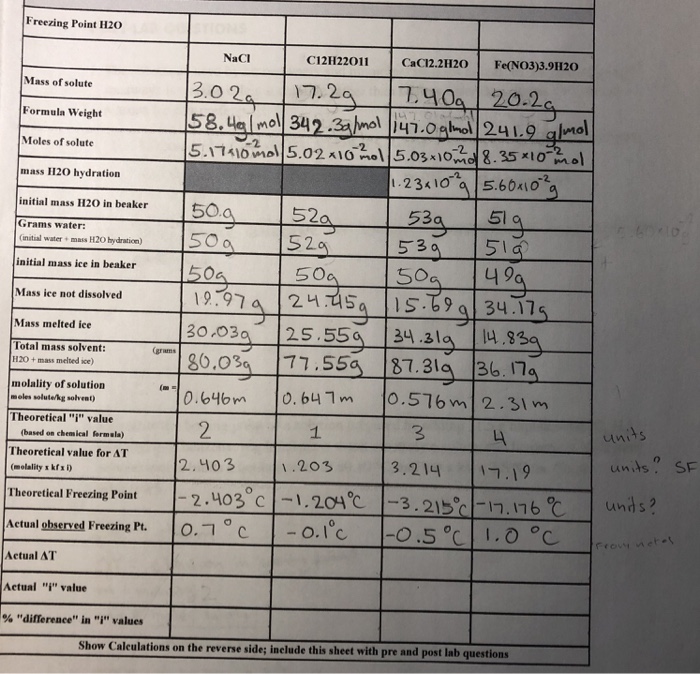 Freezing Point H2O
NaCl C12H22O11 CaCl2.2H2O Fe(NO3)3.9H2O
Mass of solute 3.02g 17.2g 7.40g 20.2g
Formula Weight 58.4g/mol 342.3g/mol 147.0g/mol 241.9 g/mol
Moles of solute 5.17x10⁻²mol 5.02x10⁻²mol 5.03x10⁻²mol 8.35x10⁻²mol
mass H2O hydration 1.23x10⁻²g 5.60x10⁻²g
initial mass H2O in beaker 50.g 52g 53g 51g
Grams water: 50g 52g 53g 51g
(initial water + mass H2O hydration)
initial mass ice in beaker 50g 50g 50g 49g
Mass ice not dissolved 19.97g 24.45g 15.69g 34.17g
Mass melted ice 30.03g 25.55g 34.31g 14.83g
Total mass solvent: (grams 80.03g 77.55g 87.31g 36.17g
H2O + mass melted ice)
molality of solution (m = 0.646m 0.647m 0.576m 2.31m
moles solute/kg solvent)
Theoretical "i" value 2 1 3 4 units
(based on chemical formula)
Theoretical value for ΔT 2.403 1.203 3.214 17.19 units? SF
(molality x kf x i)
Theoretical Freezing Point -2.403°C -1.204°C -3.215°C -17.176°C units?
Actual observed Freezing Pt. 0.7°C -0.1°C -0.5°C 1.0°C
Actual ΔT
Actual "i" value
% "difference" in "i" values
Show Calculations on the reverse side; include this sheet with pre and post lab questions